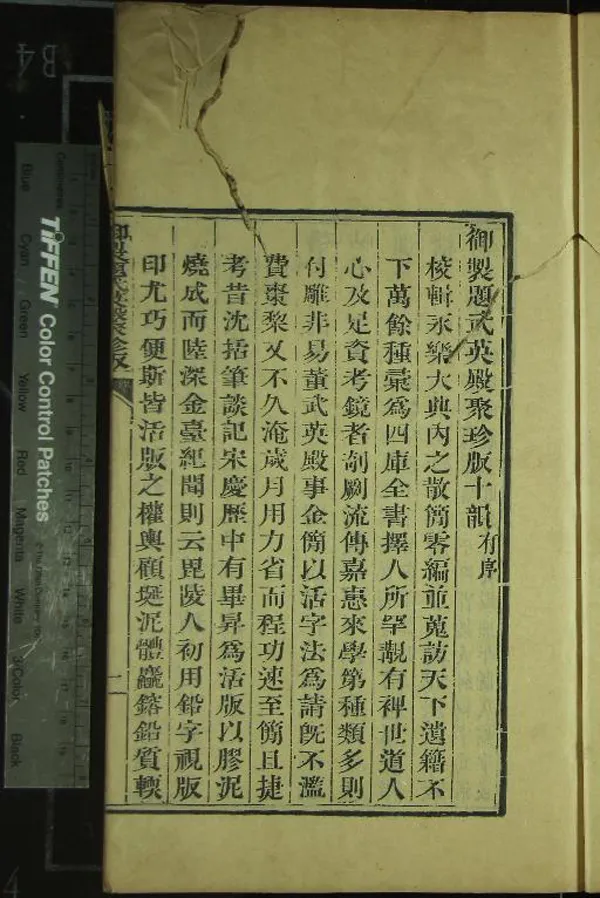 御製題武英殿聚珍版十韻有序
校輯永樂大典內之散簡零編並蒐訪天下遺籍不
下萬餘種彙為四庫全書擇人所罕覯有裨世道人
心及足資考鏡者剞劂流傳嘉惠來學第種類多則
付雕非易董武英殿事金簡以活字法為請既不濫
費棗梨又不久淹歲月用力省而程功速至簡且捷
考昔沈括筆談記宋慶歷中有畢昇為活版以膠泥
燒成而陸深金臺紀聞則云毘陵人初用鉛字視版
印尤巧便斯皆活版之權輿顧埏泥體麤鎔鉛質輭
御製題武英殿聚珍版
一
TIFFEN Color Control Patches
Blue Cyan Green Yellow Red Magenta White 3/Color Black
B4
4